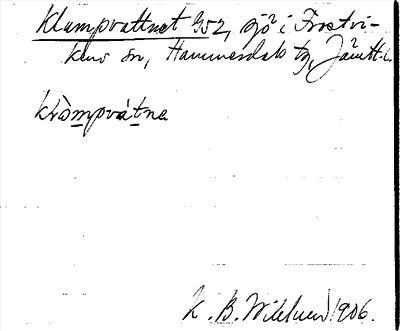 Klumpvattnet G52, sjö i Frostvi-
kens sn, Hammerdals tg, Jämtl. l.
klòmpvátne
K. B. Wiklund 1906.